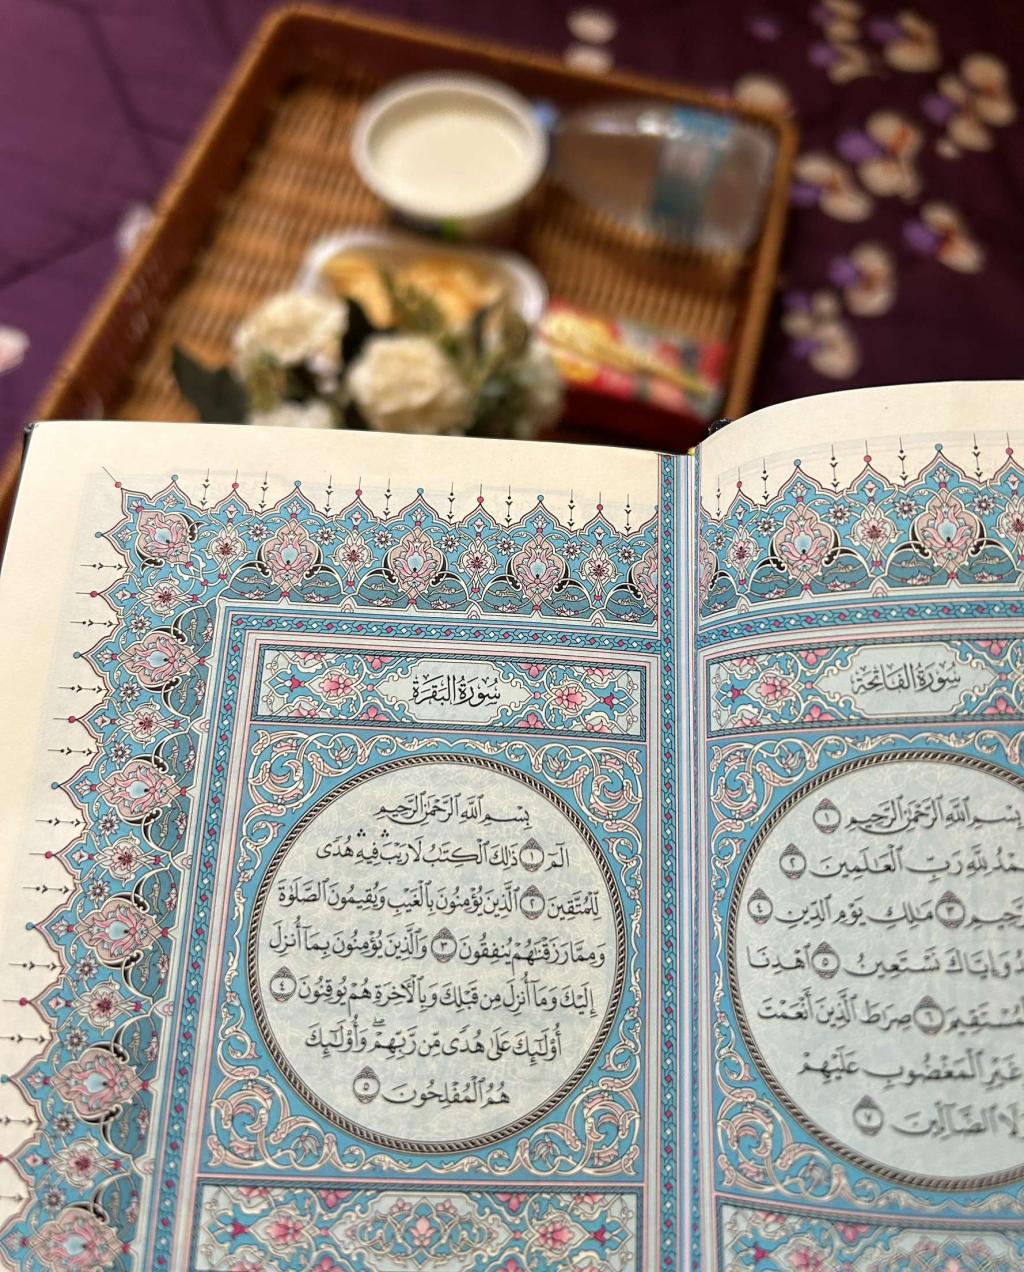 سُورَةُ الفَاتِحَةِ
بِسْمِ ٱللَّهِ ٱلرَّحْمَٰنِ ٱلرَّحِيمِ ١
لِلَّهِ رَبِّ ٱلْعَٰلَمِينَ ٢
٣ مَٰلِكِ يَوْمِ ٱلدِّينِ ٤
وَإِيَّاكَ نَسْتَعِينُ ٥ ٱهْدِنَا
٦ صِرَٰطَ ٱلَّذِينَ أَنْعَمْتَ
غَيْرِ ٱلْمَغْضُوبِ عَلَيْهِمْ
ٱلضَّآلِّينَ ٧
سُورَةُ البَقَرَةِ
بِسْمِ ٱللَّهِ ٱلرَّحْمَٰنِ ٱلرَّحِيمِ
الٓمٓ ١ ذَٰلِكَ ٱلْكِتَٰبُ لَا رَيْبَ ۛ فِيهِ ۛ هُدًى
لِّلْمُتَّقِينَ ٢ ٱلَّذِينَ يُؤْمِنُونَ بِٱلْغَيْبِ وَيُقِيمُونَ ٱلصَّلَوٰةَ
وَمِمَّا رَزَقْنَٰهُمْ يُنفِقُونَ ٣ وَٱلَّذِينَ يُؤْمِنُونَ بِمَآ أُنزِلَ
إِلَيْكَ وَمَآ أُنزِلَ مِن قَبْلِكَ وَبِٱلْءَاخِرَةِ هُمْ يُوقِنُونَ ٤
أُو۟لَٰٓئِكَ عَلَىٰ هُدًى مِّن رَّبِّهِمْ ۖ وَأُو۟لَٰٓئِكَ
هُمُ ٱلْمُفْلِحُونَ ٥